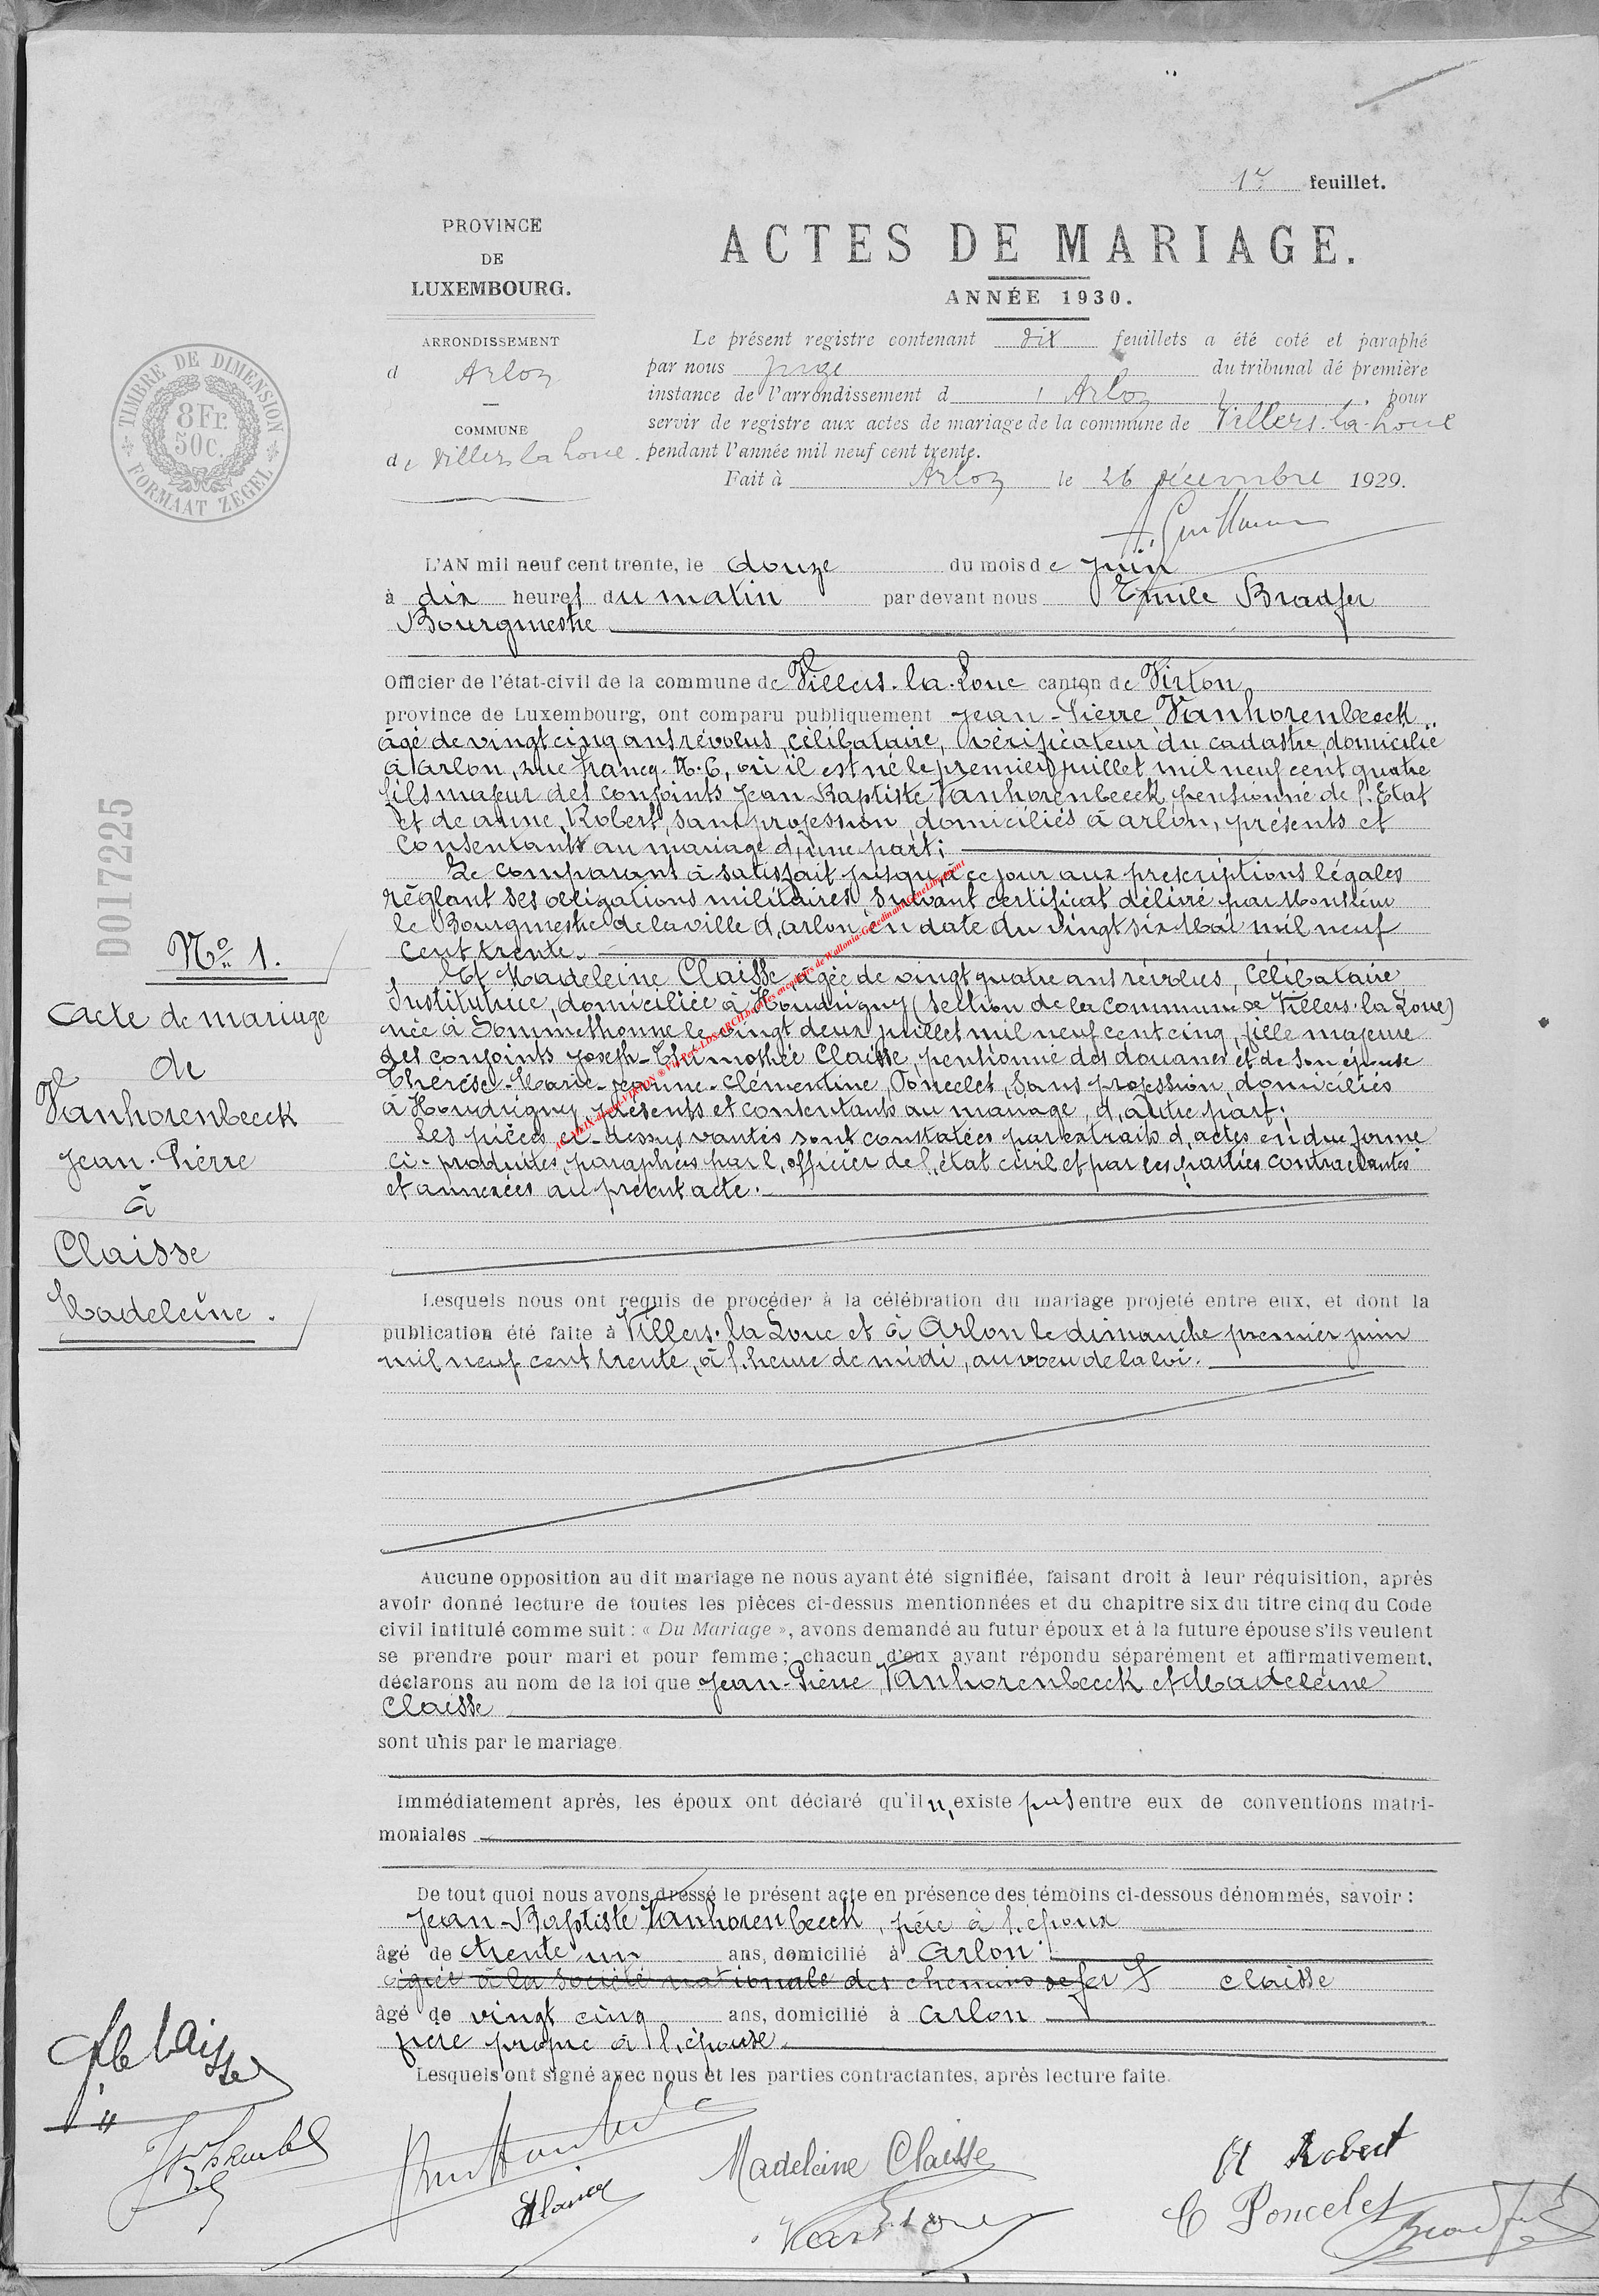 1er feuillet.
PROVINCE
DE
LUXEMBOURG.
ARRONDISSEMENT
d Arlon
COMMUNE
de Villers la Loue.
ACTES DE MARIAGE.
ANNÉE 1930.
Le présent registre contenant dix feuillets a été coté et paraphé
par nous Juge du tribunal de première
instance de l'arrondissement d Arlon pour
servir de registre aux actes de mariage de la commune de Villers-la-Loue
pendant l'année mil neuf cent trente.
Fait à Arlon le 26 Décembre 1929.
TIMBRE DE DIMENSION
8 Fr.
50 c.
FORMAAT ZEGEL
D017225
No 1.
Acte de mariage
de
Vanhorenbeeck
Jean-Pierre
à
Claisse
Madeleine.
L'AN mil neuf cent trente, le douze du mois de Juin
à dix heures du matin par devant nous Emile Bradfer
Bourgmestre
Officier de l'état-civil de la commune de Villers-la-Loue canton de Virton
province de Luxembourg, ont comparu publiquement Jean-Pierre Vanhorenbeeck
âgé de vingt cinq ans révolus, célibataire, vérificateur du cadastre, domicilié
à Arlon, rue Francq. N. 6, où il est né le premier Juillet mil neuf cent quatre
fils majeur des conjoints Jean-Baptiste Vanhorenbeeck, pensionné de l'Etat
et de anne Robert, sans profession domiciliés à arlon, présents et
consentants au mariage d'une part;
Le comparant à satisfait jusqu'à ce jour aux prescriptions légales
réglant ses obligations militaires suivant certificat délivré par Monsieur
le Bourgmestre de la ville d'arlon en date du vingt six Mai mil neuf
cent trente.
Et Madeleine Claisse, âgée de vingt quatre ans révolus, célibataire
Institutrice, domiciliée à Houdrigny (section de la commune de Villers-la-Loue)
née à Sommethonne le vingt deux juillet mil neuf cent cinq, fille majeure
des conjoints Joseph-Thimothée Claisse, pensionné des douanes et de son épouse
Thérèse-Marie-Jeanne-Clémentine Poncelet, sans profession, domiciliés
à Houdrigny présents et consentants au mariage, d'autre part;
Les pièces ci-dessus vantés sont constatées par extraits d'actes en due forme
ci-produites, paraphées par l'officier de l'état civil et par les parties contractantes
et annexées au présent acte.
Lesquels nous ont requis de procéder à la célébration du mariage projeté entre eux, et dont la
publication été faite à Villers-la Loue et à Arlon le dimanche premier juin
mil neuf cent trente, à l'heure de midi, au voeu de la loi.
Aucune opposition au dit mariage ne nous ayant été signifiée, faisant droit à leur réquisition, après
avoir donné lecture de toutes les pièces ci-dessus mentionnées et du chapitre six du titre cinq du Code
civil intitulé comme suit : « Du Mariage », avons demandé au futur époux et à la future épouse s'ils veulent
se prendre pour mari et pour femme; chacun d'eux ayant répondu séparément et affirmativement,
déclarons au nom de la loi que Jean-Pierre Vanhorenbeeck et Madeleine
Claisse
sont unis par le mariage.
Immédiatement après, les époux ont déclaré qu'il n'existe pas entre eux de conventions matri-
moniales
De tout quoi nous avons dressé le présent acte en présence des témoins ci-dessous dénommés, savoir :
Jean-Baptiste Vanhorenbeeck, père à l'époux
âgé de trente un ans, domicilié à Arlon
à la société nationale des chemins de fer Claisse
âgé de vingt cinq ans, domicilié à Arlon
frère propre à l'épouse.
Lesquels ont signé avec nous et les parties contractantes, après lecture faite.
Madeleine Claisse
Robert
C Poncelet